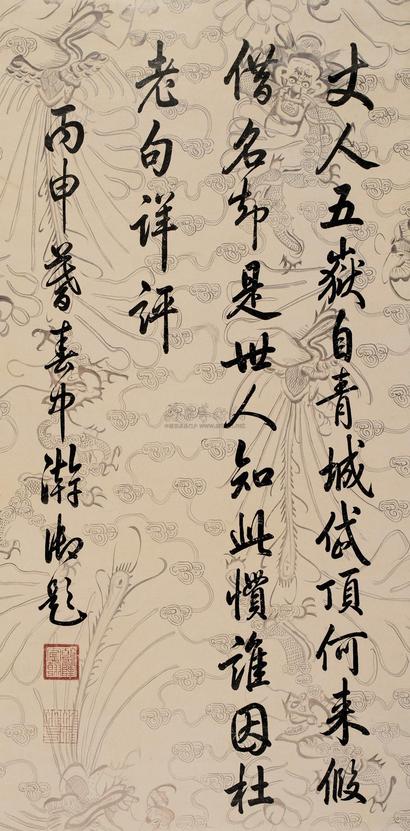 丈人五嶽自青城岱頂何來假
借名却是世人知此慣誰因杜
老句詳評
丙申暮春中澣御題